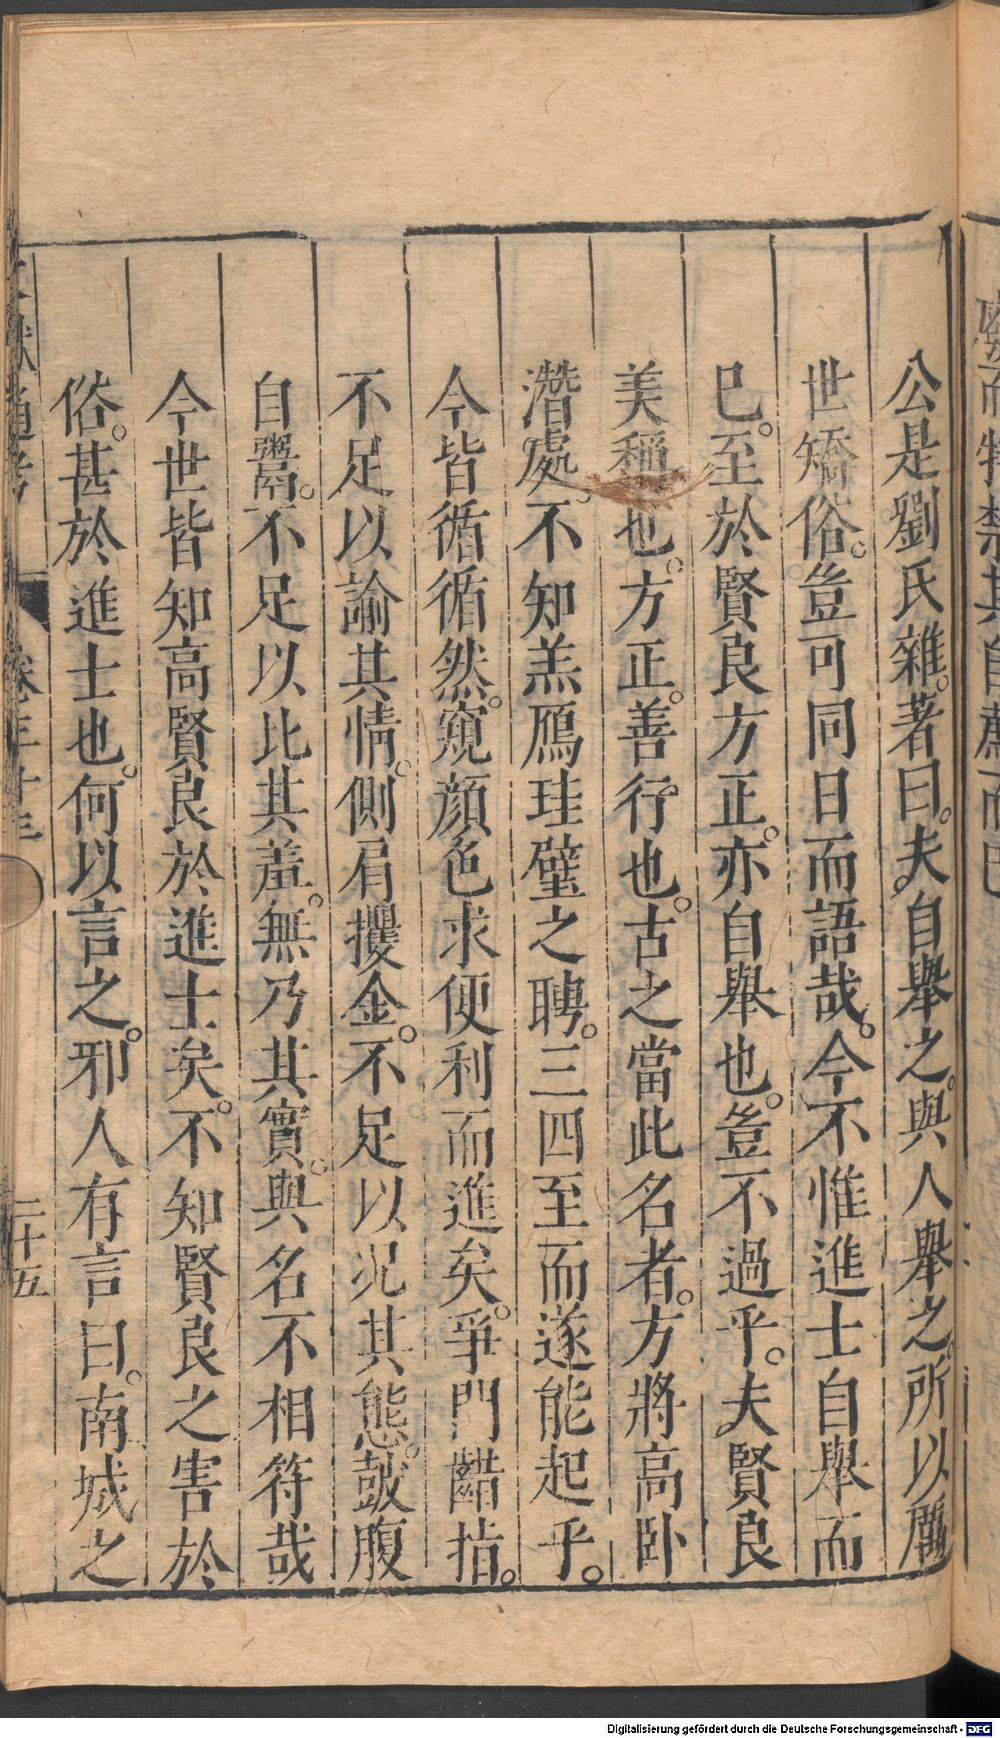 公是劉氏雜著曰。夫自舉之。與人舉之。所以厲
世矯俗。豈可同日而語哉。今不惟進士自舉而
已。至於賢良方正。亦自舉也。豈不過乎。夫賢良
美稱也。方正。善行也。古之當此名者。方將高卧
潛處。不知羔鴈珪璧之聘。三四至而遂能起乎。
今皆循循然。窺顏色求便利而進矣。爭門齰指。
不足以諭其情。側肩攫金。不足以況其態。鼓腹
自鬻。不足以比其羞。無乃其實。與名不相符哉
今世皆知高賢良於進士矣。不知賢良之害於
俗。甚於進士也。何以言之。邪人有言曰。南城之
文獻通考
卷三十三
二十五
Digitalisierung gefördert durch die Deutsche Forschungsgemeinschaft - DFG